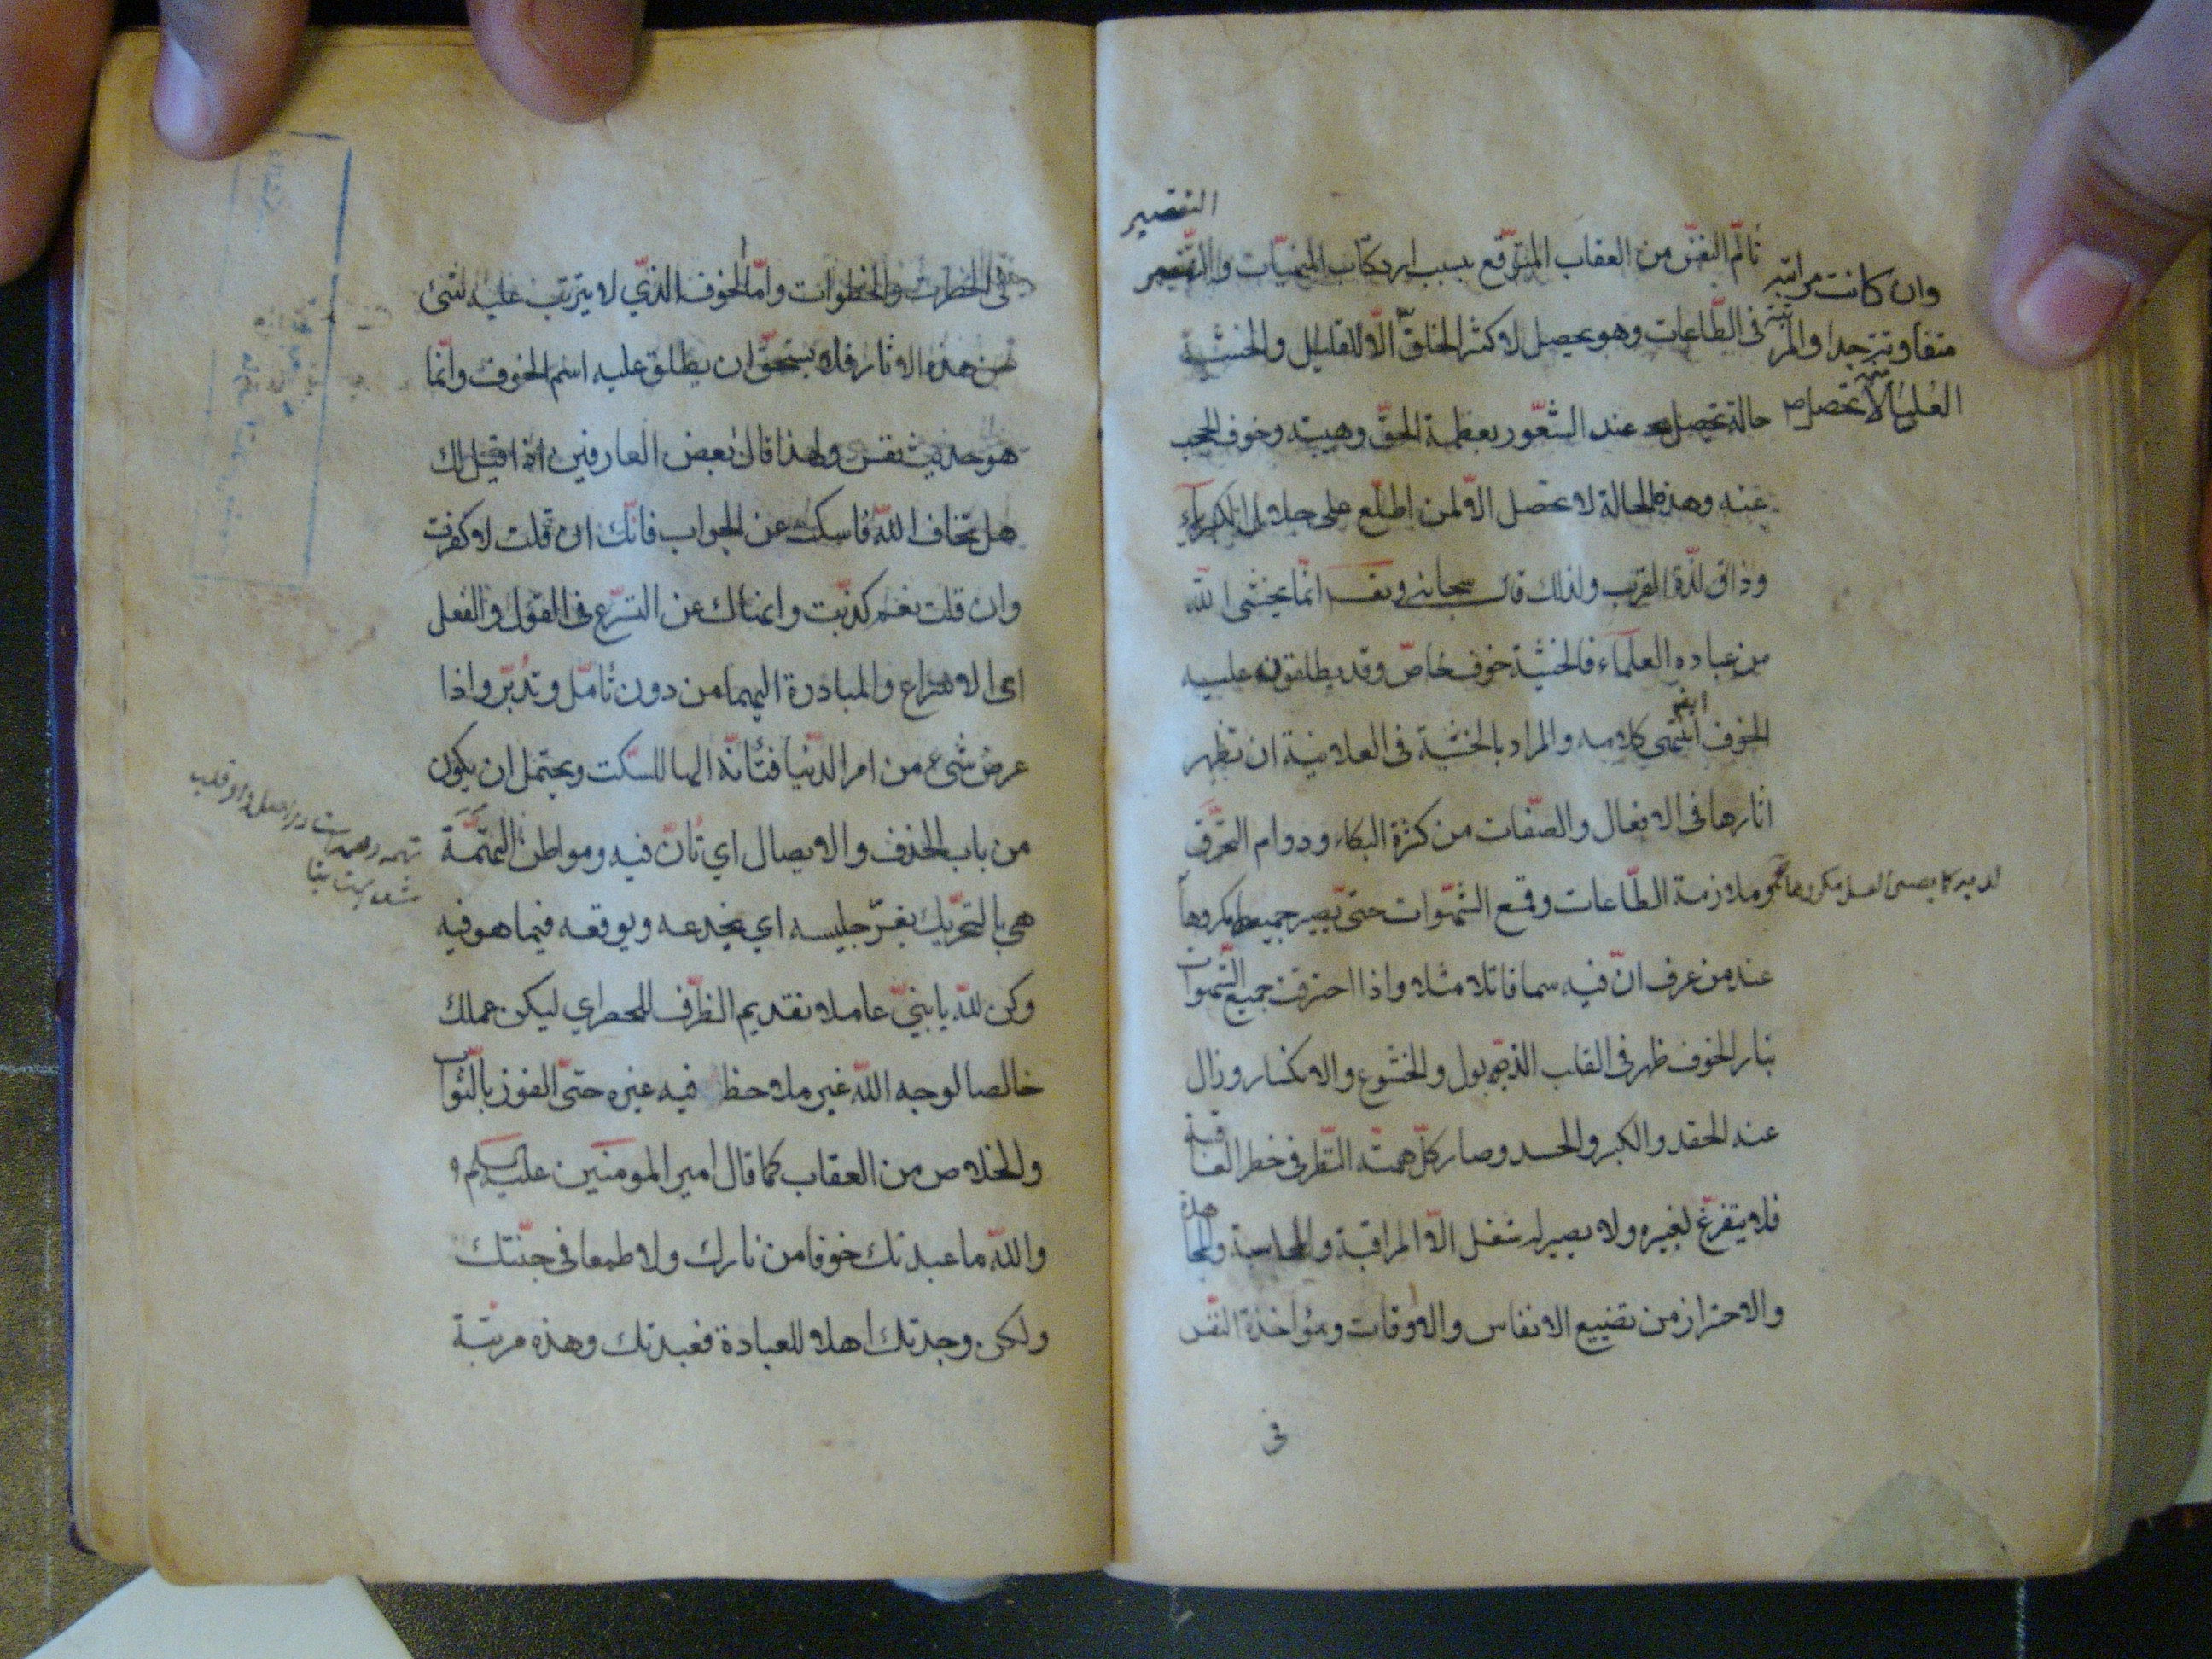 التقصير
تألّم النفس من العقاب المتوقّع بسبب ارتكاب المنهيّات والتقصير
وان كانت مراتبه
متفاوتة جدا والمرتبة
العليا لا تحصل
في الطّاعات وهو يحصل لاكثر الخلق الّا للقليل والخشية
حالة تحصل عند الشّعور بعظمة الحقّ وهيبته وخوف الحجب
عنه وهذه الحالة لا تحصل الّا لمن اطّلع على جلال الكبرياء
وذاق لذّة القرب ولذلك قال سبحانه وتعـ انّما يخشى اللّه
من عباده العلماء فالخشية خوف خاصّ وقد يطلقون عليه
الخوف ايضا انتهى كلامه والمراد بالخشية في العلانية ان تظهر
اثارها في الافعال والصّفات من كثرة البكاء ودوام التحرّق
وملازمة الطّاعات وقمع الشّهوات حتىّ يصير جميعها مكروها
لديه كما يصير العسل مكروها
عند من عرف انّ فيه سما قاتلا مثلا واذا احترقت جميع الشّهوات
بنار الخوف ظهر في القلب الذبول والخشوع والانكسار وزال
عنه الحقد والكبر والحسد وصار كلّ همته النّظر في خطر العاقبة
فلا يتفرّغ لغيره ولا يصير له شغل الّا المراقبة والمحاسبة والمجاهدة
والاحتراز من تضييع الانفاس والاوقات ومؤاخذة النّفس
في
في الخطرات والخطوات وامّا الخوف الذّي لا يترتب عليه شئ
من هذه الاثار فلا يستحقّ ان يطلق عليه اسم الخوف وانّما
هو حديث نفس ولهذا قال بعض العارفين اذا قيل لك
هل تخاف اللّه فاسكت عن الجواب فانّك ان قلت لا كفرت
وان قلت نعم كذبت وانهاك عن التسرّع في القول والفعل
اى الاسراع والمبادرة اليهما من دون تأمّل وتدبّر واذا
عرض شيء من امر الدّنيا فتأنّه الها للسّكت ويحتمل ان يكون
من باب الحذف والايصال اي تأنّ فيه ومواطن التّهمة
هي بالتحريك يغرّ جليسه اي يخدعه ويوقعه فيما هو فيه
وكن للّه يا بنيّ عاملا تقديم الظّرف للحصر اي ليكن عملك
خالصا لوجه اللّه غير ملاحظ فيه غيره حتىّ الفوز بالثّواب
والخلاص من العقاب كما قال امير المومنين عليه السلم و
واللّه ما عبدتك خوفا من نارك ولا طمعا في جنّتك
ولكن وجدتك اهلا للعبادة فعبدتك وهذه مرتبة